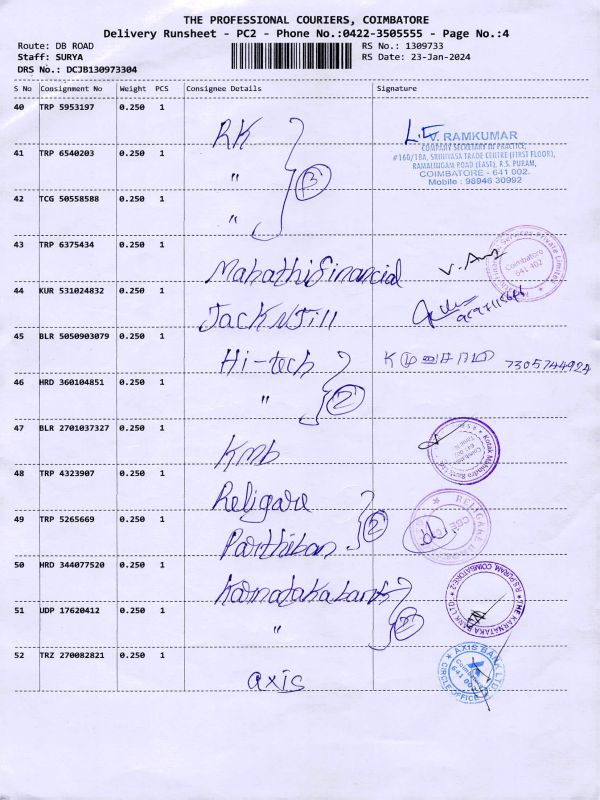 THE PROFESSIONAL COURIERS, COIMBATORE
Delivery Runsheet - PC2 - Phone No.:0422-3505555 - Page No.:4
Route: DB ROAD
RS No.: 1309733
Staff: SURYA
RS Date: 23-Jan-2024
DRS No.: DCJB130973304
S No Consignment No Weight PCS Consignee Details Signature
40 TRP 5953197 0.250 1
RK
V. RAMKUMAR
COMPANY SECRETARY IN PRACTICE,
#160/18A, SRINIVASA TRADE CENTRE (FIRST FLOOR),
RAMALINGAM ROAD (EAST), R.S. PURAM,
COIMBATORE - 641 002.
Mobile : 98946 30992
41 TRP 6540203 0.250 1
"
3
42 TCG 50558588 0.250 1
"
43 TRP 6375434 0.250 1
Mahathi Financial
Coimbatore
641 402
44 KUR 531024832 0.250 1
Jack N Jill
45 BLR 5050903079 0.250 1
Hi-tech
7305744924
46 HRD 360104851 0.250 1
"
2
47 BLR 2701037327 0.250 1
KMB
Kotak Mahindra Bank Ltd
48 TRP 4323907 0.250 1
Religare
RELIGARE
49 TRP 5265669 0.250 1
Parthiban
2
50 HRD 344077520 0.250 1
Karnataka bank
THE KARNATAKA BANK LTD
R.S.PURAM, COIMBATORE-2
51 UDP 17620412 0.250 1
"
2
52 TRZ 270082821 0.250 1
axis
AXIS BANK LTD
Coimbatore
641 002
CIRCLE OFFICE